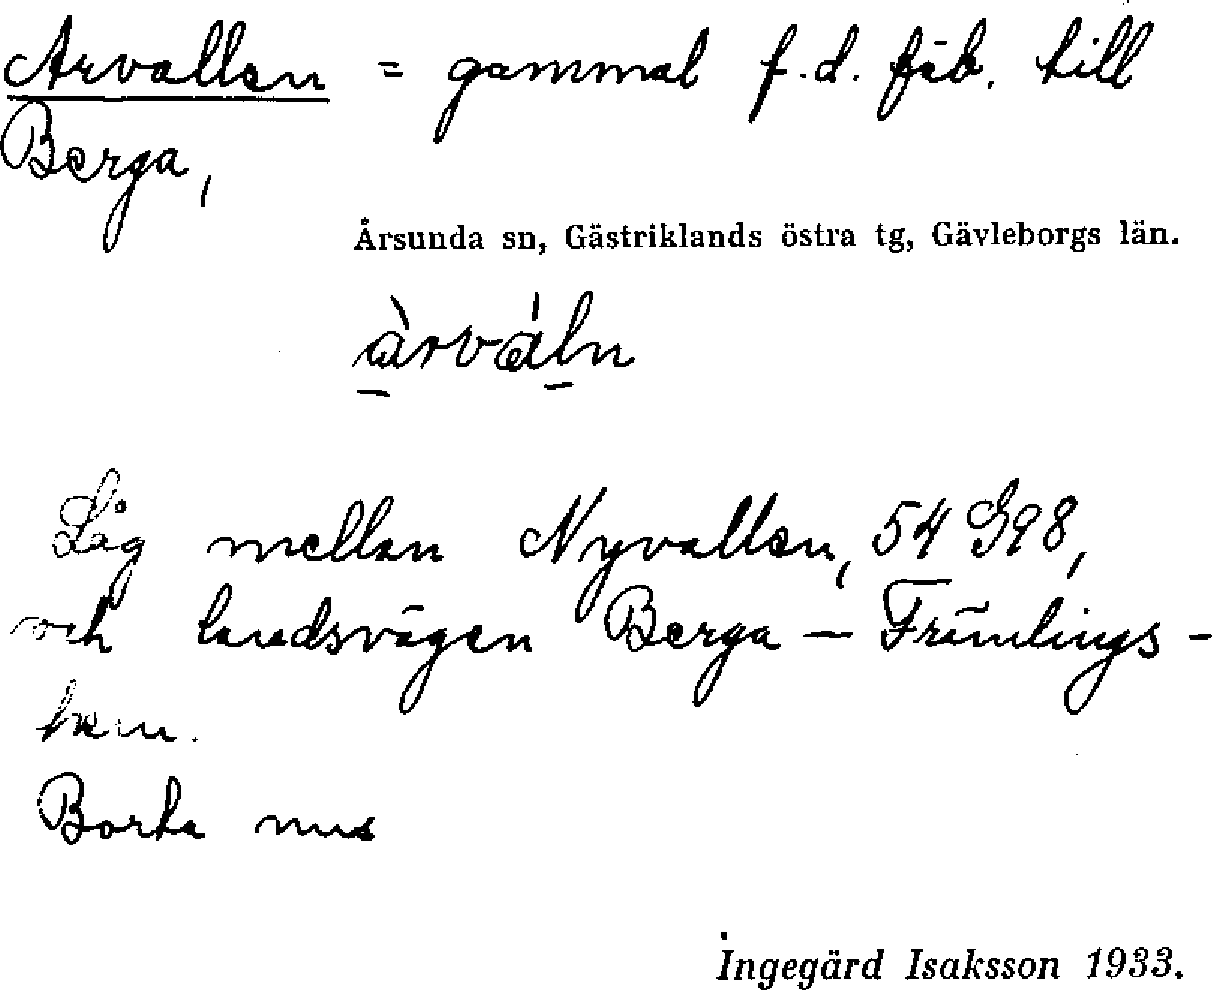 Arvallen = gammal f.d. fäb. till
Berga,
Årsunda sn, Gästriklands östra tg, Gävleborgs län.
àrváln
Låg mellan Nyvallen, 54 G98,
och landsvägen Berga — Främlings-
hem.
Borta nu
Ingegärd Isaksson 1933.